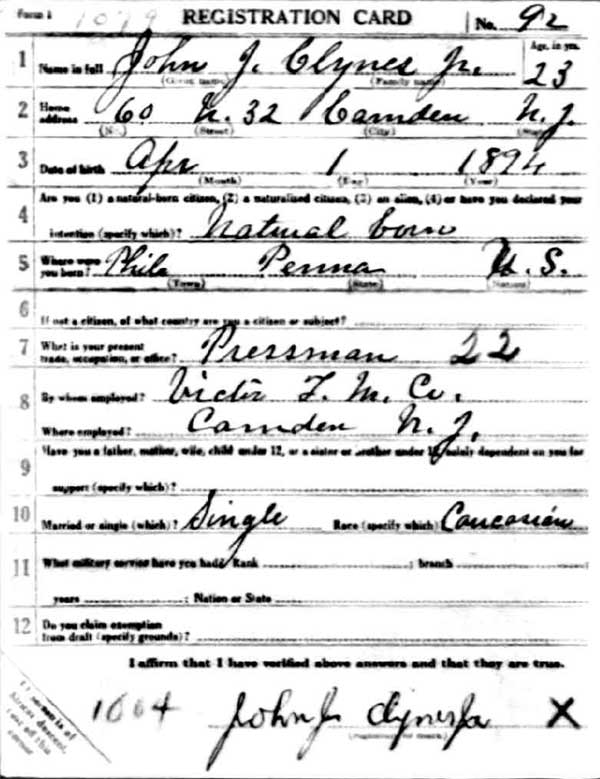 Form 1 1079 REGISTRATION CARD No. 92
1 Name in full John J. Clynes Jr. Age, in yrs. 23
(Given name) (Family name)
2 Home address 60 N. 32 Camden N. J.
(No.) (Street) (City) (State)
3 Date of birth Apr 1 1894
(Month) (Day) (Year)
4 Are you (1) a natural-born citizen, (2) a naturalized citizen, (3) an alien, (4) or have you declared your
intention (specify which)? Natural born
5 Where were you born? Phila Penna U. S.
(Town) (State) (Nation)
6 If not a citizen, of what country are you a citizen or subject?
7 What is your present trade, occupation, or office? Pressman 22
8 By whom employed? Victor T. M. Co.
Where employed? Camden N. J.
9 Have you a father, mother, wife, child under 12, or a sister or brother under 12, solely dependent on you for
support (specify which)?
10 Married or single (which)? Single Race (specify which) Caucasian
11 What military service have you had? Rank ; branch
years ; Nation or State
12 Do you claim exemption from draft (specify grounds)?
I affirm that I have verified above answers and that they are true.
1664 John J. Clynes Jr X
If person is of African descent, tear off this corner